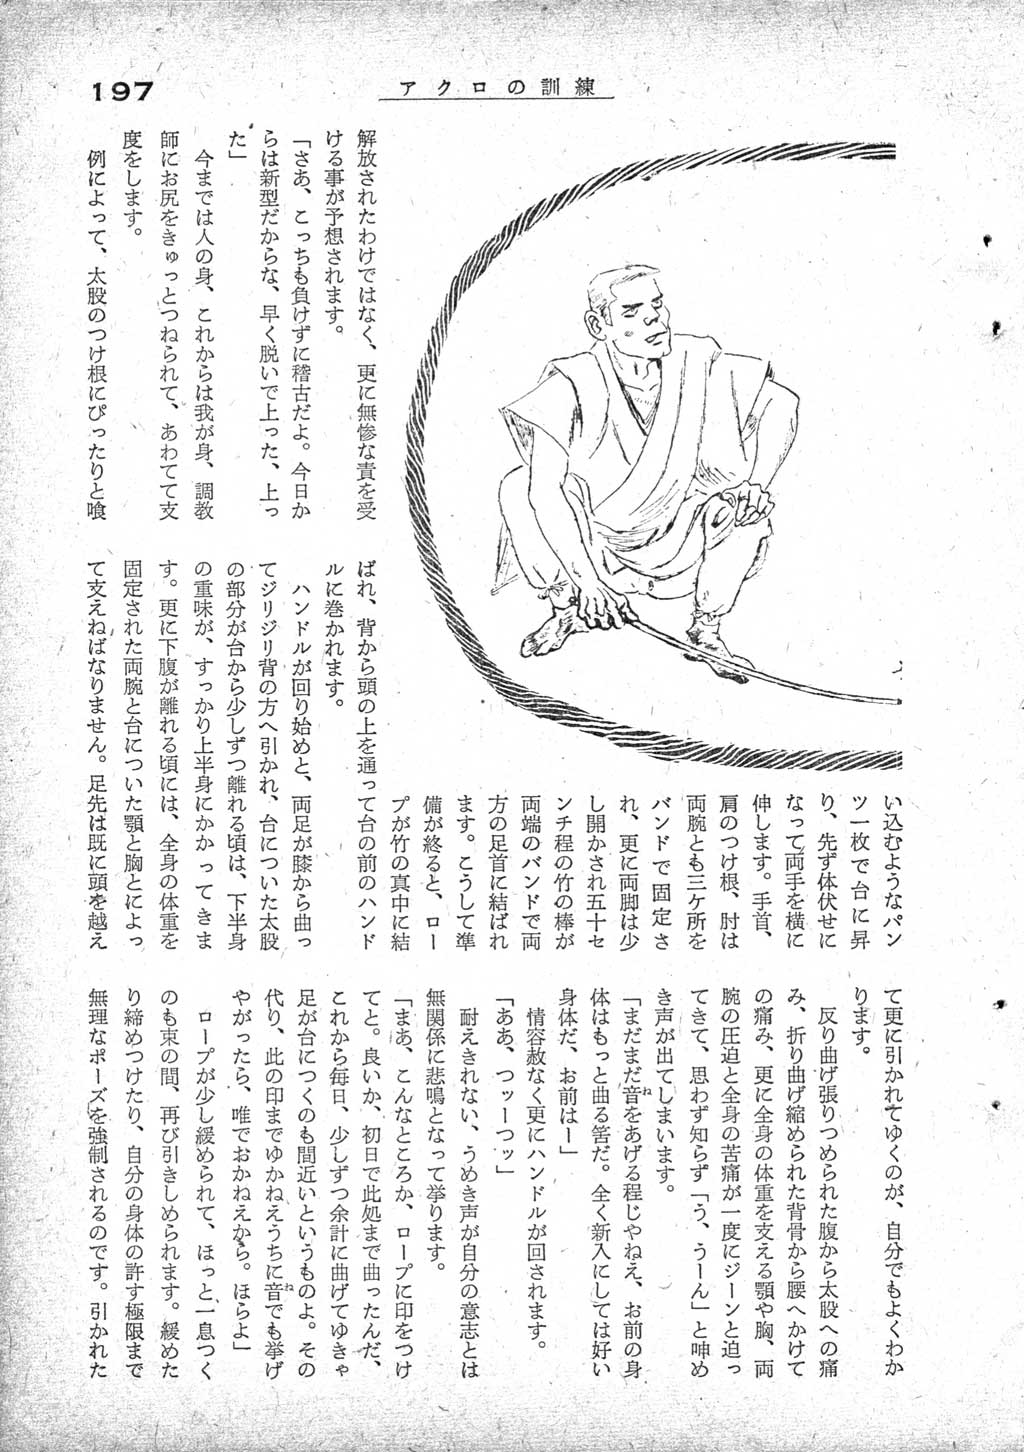 197
アクロの訓練
解放されたわけではなく、更に無惨な責を受
ける事が予想されます。
「さあ、こっちも負けずに稽古だよ。今日か
らは新型だからな、早く脱いで上った、上っ
た」
今までは人の身、これからは我が身、調教
師にお尻をきゅっとつねられて、あわてて支
度をします。
例によって、太股のつけ根にぴったりと喰
い込むようなパン
ツ一枚で台に昇
り、先ず体伏せに
なって両手を横に
伸します。手首、
肩のつけ根、肘は
両腕とも三ケ所を
バンドで固定さ
れ、更に両脚は少
し開かされ五十セ
ンチ程の竹の棒が
両端のバンドで両
方の足首に結ばれ
ます。こうして準
備が終ると、ロー
プが竹の真中に結
ばれ、背から頭の上を通って台の前のハンド
ルに巻かれます。
ハンドルが回り始めと、両足が膝から曲っ
てジリジリ背の方へ引かれ、台についた太股
の部分が台から少しずつ離れる頃は、下半身
の重味が、すっかり上半身にかかってきま
す。更に下腹が離れる頃には、全身の体重を
固定された両腕と台についた顎と胸とによっ
て支えねばなりません。足先は既に頭を越え
て更に引かれてゆくのが、自分でもよくわか
ります。
反り曲げ張りつめられた腹から太股への痛
み、折り曲げ縮められた背骨から腰へかけて
の痛み、更に全身の体重を支える顎や胸、両
腕の圧迫と全身の苦痛が一度にジーンと迫っ
てきて、思わず知らず「う、うーん」と呻め
き声が出てしまいます。
「まだまだ音をあげる程じゃねえ、お前の身
体はもっと曲る筈だ。全く新入にしては好い
身体だ、お前はー」
情容赦なく更にハンドルが回されます。
「ああ、つッーつッ」
耐えきれない、うめき声が自分の意志とは
無関係に悲鳴となって挙ります。
「まあ、こんなところか、ロープに印をつけ
てと。良いか、初日で此処まで曲ったんだ、
これから毎日、少しずつ余計に曲げてゆきゃ
足が台につくのも間近いというものよ。その
代り、此の印までゆかねえうちに音でも挙げ
やがったら、唯でおかねえから。ほらよ」
ロープが少し緩められて、ほっと一息つく
のも束の間、再び引きしめられます。緩めた
り締めつけたり、自分の身体の許す極限まで
無理なポーズを強制されるのです。引かれた